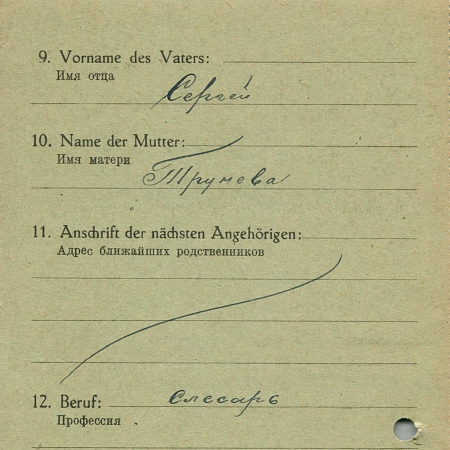 9. Vorname des Vaters:
Имя отца
Сергей
10. Name der Mutter:
Имя матери
Трунева
11. Anschrift der nächsten Angehörigen:
Адрес ближайших родственников
12. Beruf: Слесарь
Профессия